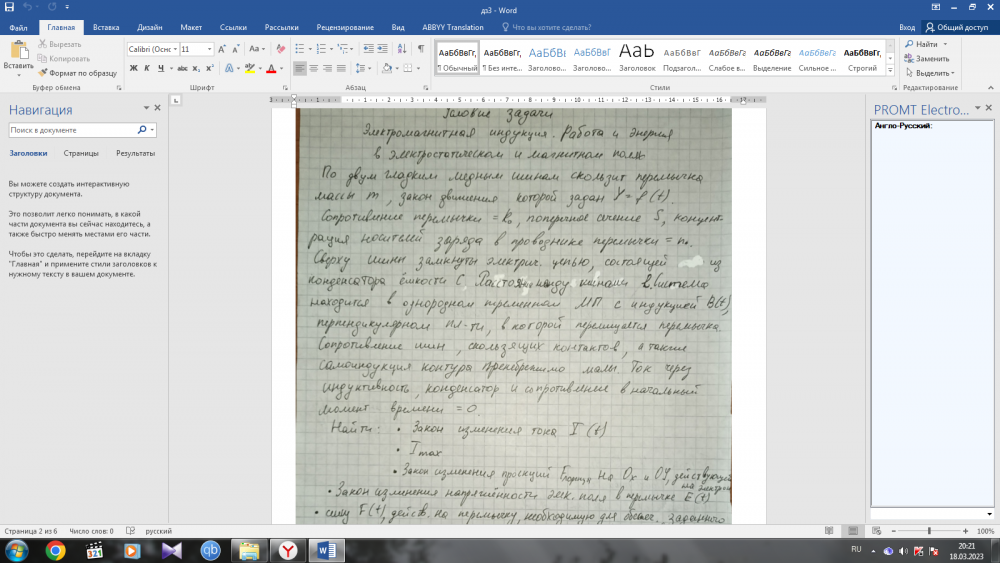 дз3 - Word
Файл Главная Вставка Дизайн Макет Ссылки Рассылки Рецензирование Вид ABBYY Translation Что вы хотите сделать? Вход Общий доступ
Вставить
Вырезать
Копировать
Формат по образцу
Буфер обмена
Calibri (Оснс 11
Шрифт
Абзац
АаБбВвГг, АаБбВвГг, АаБбВі АаБбВвГ АаЬ АаБбВвГ АаБбВвГг АаБбВвГг АаБбВвГг АаБбВвГг,
¶ Обычный ¶ Без инте... Заголово... Заголово... Заголовок Подзагол... Слабое в... Выделение Сильное ... Строгий
Стили
Найти
Заменить
Выделить
Редактирование
Навигация
Поиск в документе
Заголовки Страницы Результаты
Вы можете создать интерактивную
структуру документа.
Это позволит легко понимать, в какой
части документа вы сейчас находитесь, а
также быстро менять местами его части.
Чтобы это сделать, перейдите на вкладку
"Главная" и примените стили заголовков к
нужному тексту в вашем документе.
задачи
Электромагнитная индукция. Работа и энергия
в электростатическом и магнитном полях
По двум гладким медным шинам скользит перемычка
массы m, закон движения которой задан Y = f(t).
Сопротивление перемычки = R₀, поперечное сечение S, концент-
рация носителей заряда в проводнике перемычки = n₀.
Сверху шины замкнуты электрич. цепью, состоящей из
конденсатора ёмкости C, Расстоян. между шинами Система
находится в однородном переменном МП с индукцией B(t),
перпендикулярном пл-ти, в которой перемещается перемычка.
Сопротивление шин, скользящих контактов, а также
самоиндукция контура пренебрежимо малы. Ток через
индуктивность, конденсатор и сопротивление в начальный
момент времени = 0.
Найти: • Закон изменения тока I(t)
• Imax
• Закон изменения проекций Fлоренца на Ox и OY, действующей
на электрон
• Закон изменения напряжённости элек. поля в перемычке E(t)
• силу F(t), действ. на перемычку, необходимую для обеспеч. заданного
PROMT Electro...
Англо-Русский:
Страница 2 из 6 Число слов: 0 русский 100%
RU 20:21
18.03.2023